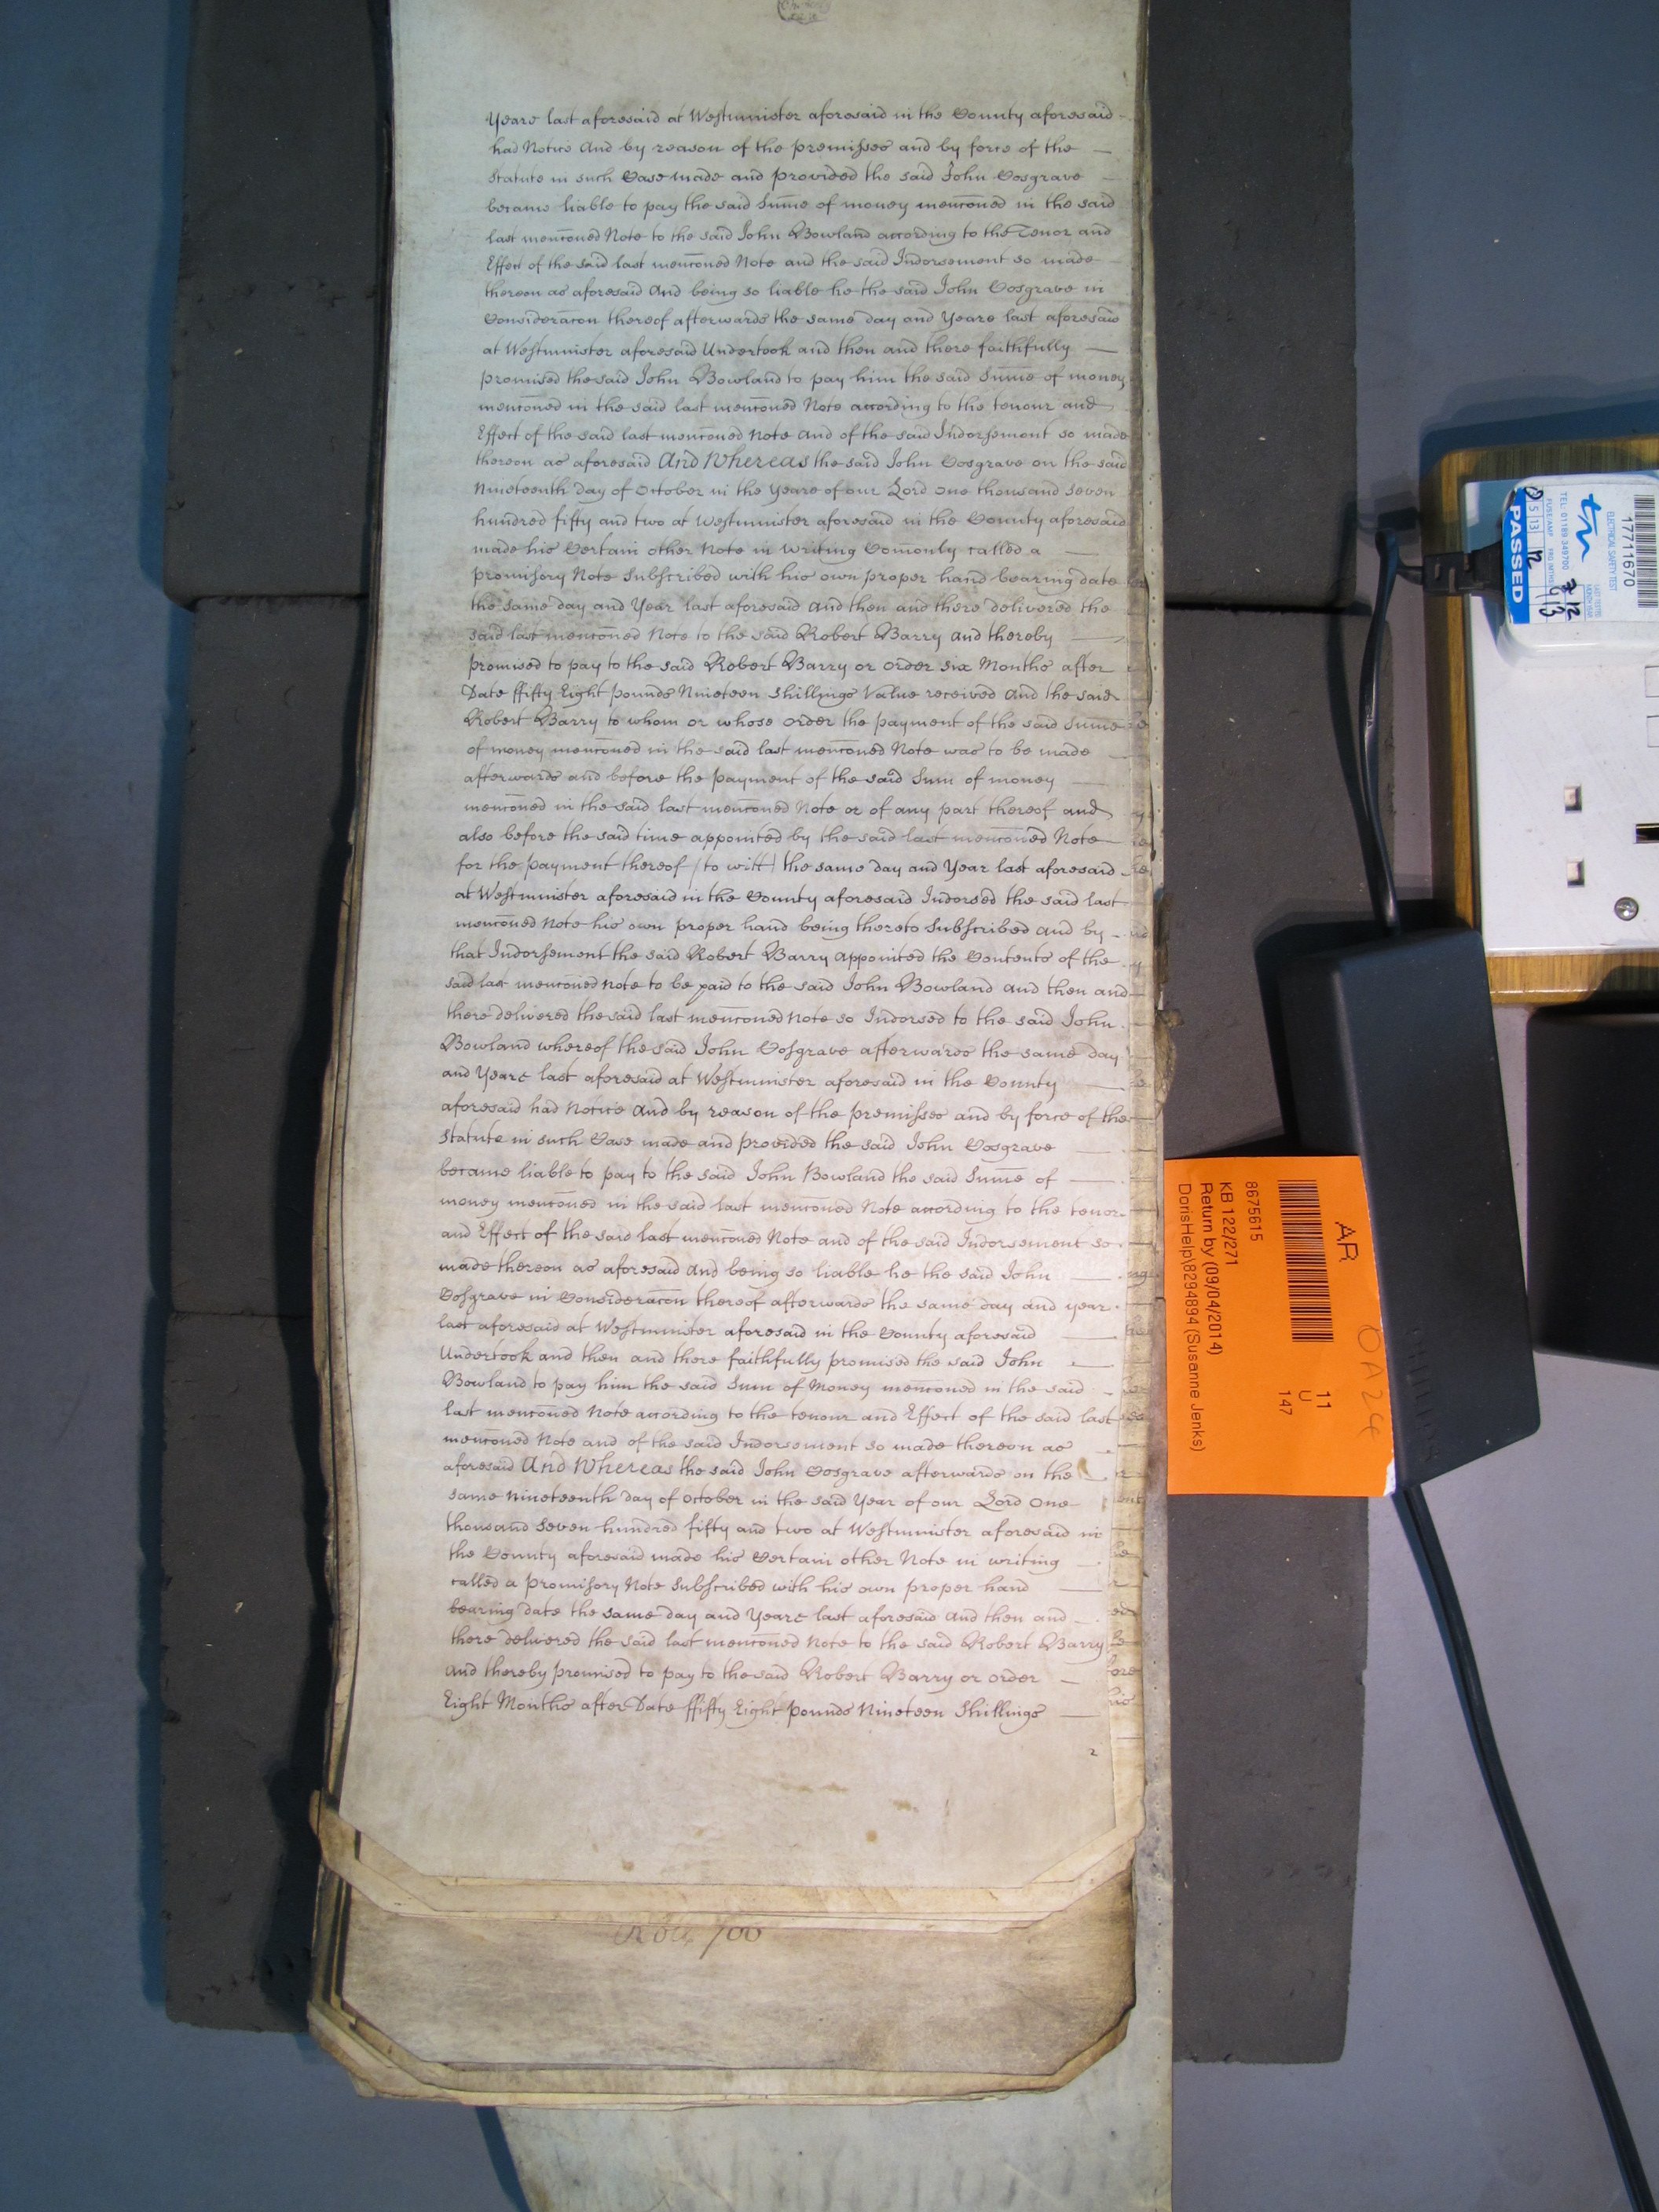 Yeare last aforesaid at Westminster aforesaid in the County aforesaid
had Notice And by reason of the premisses and by force of the
Statute in such Case made and provided the said John Cosgrave
became liable to pay the said Sum̄e of money menc̄oned in the said
last menc̄oned Note to the said John Bowland according to the Tenor and
Effect of the said last menc̄oned Note and the said Indorsement so made
thereon as aforesaid And being so liable he the said John Cosgrave in
Considerac̄on thereof afterwards the same day and Yeare last aforesaid
at Westminster aforesaid Undertook and then and there faithfully
promised the said John Bowland to pay him the said Sum̄e of money
menc̄oned in the said last menc̄oned Note according to the tenour and
Effect of the said last menc̄oned Note and of the said Indorsement so made
thereon as aforesaid And Whereas the said John Cosgrave on the said
Nineteenth day of October in the Yeare of our Lord One thousand Seven
hundred fifty and two at Westminster aforesaid in the County aforesaid
made his Certain other Note in Writing Com̄only called a
promisory Note Subscribed with his own proper hand bearing date
the same day and Year last aforesaid And then and there delivered the
said last menc̄oned Note to the said Robert Barry and thereby
promised to pay to the said Robert Barry or order six Months after
Date ffifty Eight pounds Nineteen Shillings Value received And the said
Robert Barry to whom or whose order the payment of the said Sum̄e
of money menc̄oned in the said last menc̄oned Note was to be made
afterwards and before the payment of the said Sum of money
menc̄oned in the said last menc̄oned Note or of any part thereof and
also before the said time appointed by the said last menc̄oned Note
for the payment thereof (to witt) the same day and Year last aforesaid
at Westminster aforesaid in the County aforesaid Indorsed the said last
menc̄oned Note his own proper hand being thereto Subscribed and by
that Indorsement the said Robert Barry appointed the Contents of the
said last menc̄oned note to be paid to the said John Bowland and then and
there delivered the said last menc̄oned Note so Indorsed to the said John
Bowland whereof the said John Cosgrave afterwards the same day
and Yeare last aforesaid at Westminster aforesaid in the County
aforesaid had Notice And by reason of the premisses and by force of the
Statute in such Case made and provided the said John Cosgrave
became liable to pay to the said John Bowland the said Sum̄e of
money menc̄oned in the said last menc̄oned Note according to the tenor
and Effect of the said last menc̄oned Note and of the said Indorsement so
made thereon as aforesaid And being so liable he the said John
Cosgrave in Considerac̄on thereof afterwards the same day and year
last aforesaid at Westminster aforesaid in the County aforesaid
Undertook and then and there faithfully promised the said John
Bowland to pay him the said Sum of Money menc̄oned in the said
last menc̄oned Note according to the tenour and Effect of the said last
menc̄oned Note and of the said Indorsement so made thereon as
aforesaid And Whereas the said John Cosgrave afterwards on the
same nineteenth day of October in the said Year of our Lord One
thousand Seven hundred fifty and two at Westminster aforesaid in
the County aforesaid made his Certain other Note in writing
called a promisory Note Subscribed with his own proper hand
bearing date the same day and Yeare last aforesaid And then and
there delivered the said last menc̄oned Note to the said Robert Barry
And thereby promised to pay to the said Robert Barry or order
Eight Months after Date ffifty Eight pounds Nineteen Shillings
2
700
AR
8675615
KB 122/271
Return by (09/04/2014)
DorisHelp\8294894 (Susanne Jenks)
11
U
147
OA24
17711670
ELECTRICAL SAFETY TEST
PASSED